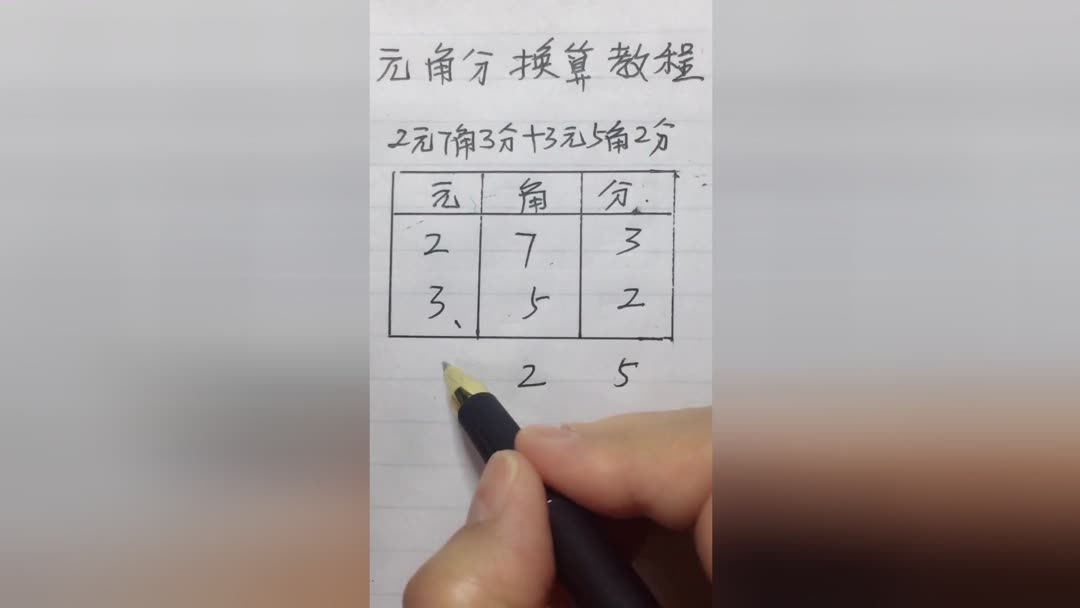 元角分换算教程
2元7角3分+3元5角2分
元 角 分
2 7 3
3、 5 2
2 5